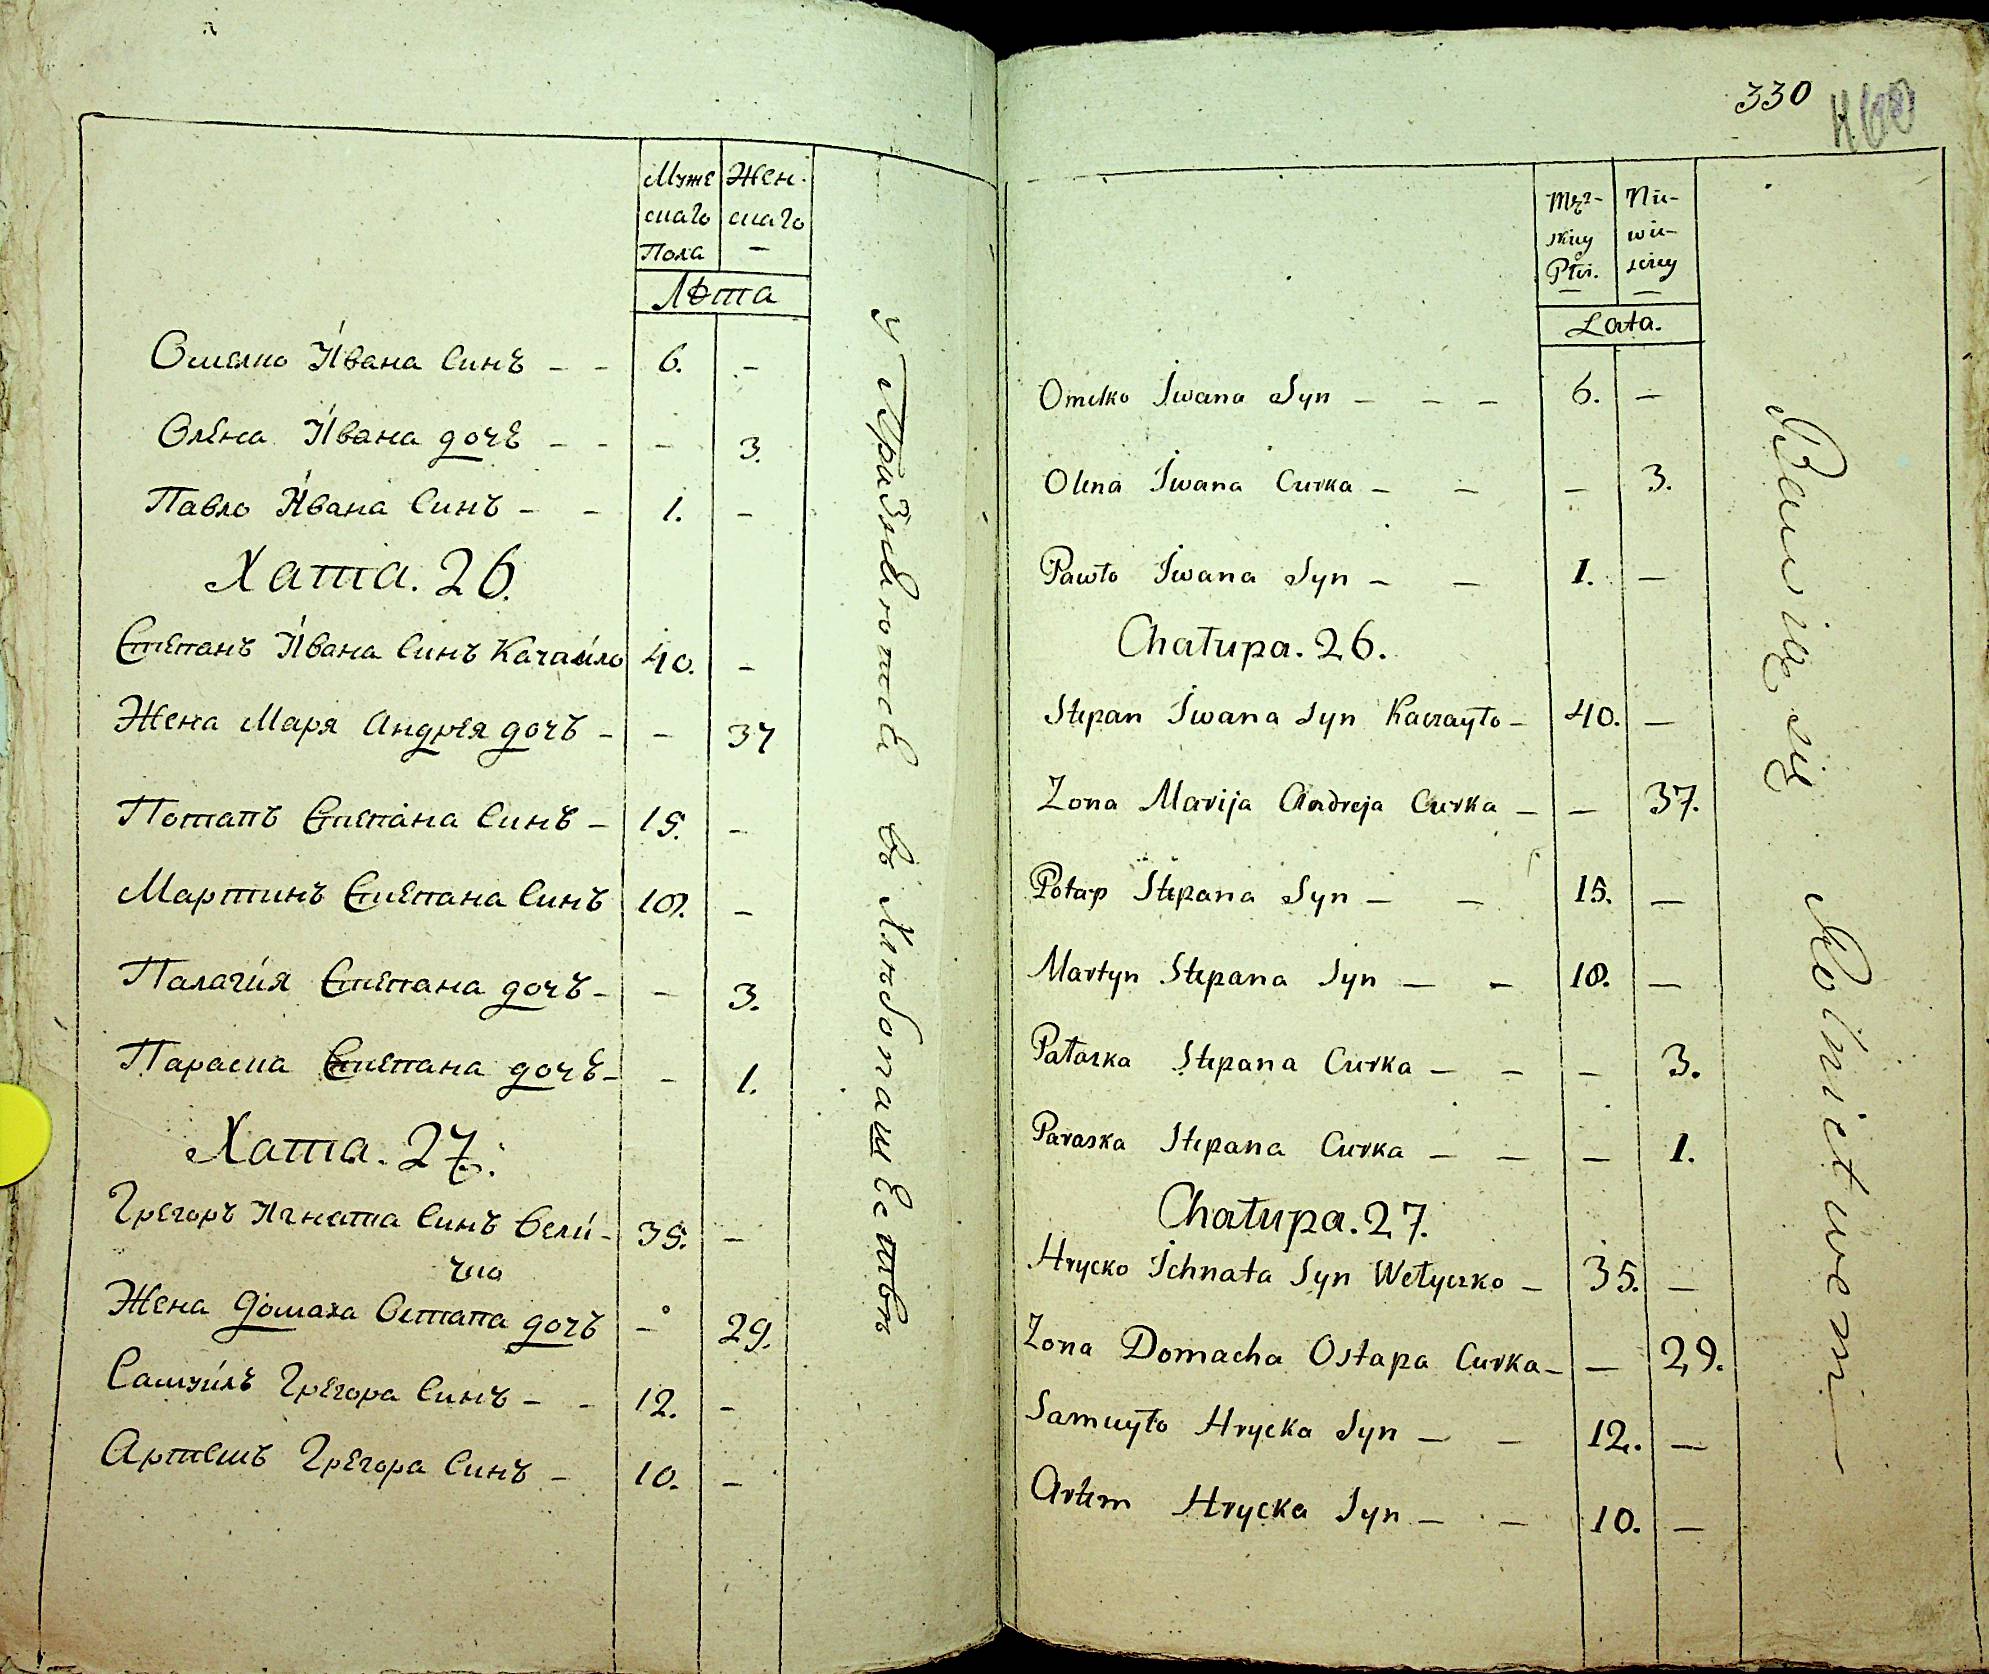 Муже Жен-
скаго скаго
Пола —
Лѣта
Омелко Ивана Синъ - - 6. -
Олена Ивана дочь - - - 3.
Павло Ивана Синъ - - 1. -
Хата. 26.
Степанъ Ивана Синъ Качайло 40. -
Жена Маря Андрея дочъ - - 37
Потапъ Степана Синъ - 15. -
Мартинъ Степана Синъ 10. -
Палагия Степана дочъ - - 3.
Параска Степана дочъ - - 1.
Хата. 27.
Грегоръ Игната Синъ Вели-
чко 35. -
Жена Домаха Остапа дочъ - 29.
Самуйлъ Грегора Синъ - - 12. -
Артемъ Грегора Синъ - 10. -
Упражняются въ Хлѣбопашествѣ
330
Męz- Nie-
skiey wie-
Płci. sciey
Lata.
Omelko Iwana Syn — — — 6. —
Olena Iwana Curka — — — 3.
Pawło Iwana Syn — — 1. —
Chałupa. 26.
Stepan Iwana Syn Kaczayło — 40. —
Zona Marija Andreja Curka — — 37.
Potap Stepana Syn — — 15. —
Martyn Stepana Syn — — 10. —
Pałaszka Stepana Curka — — — 3.
Paraska Stepana Curka — — — 1.
Chałupa. 27.
Hrycko Ichnata Syn Wełyczko — 35. —
Zona Domacha Ostapa Curka — — 29.
Samuyło Hrycka Syn — — 12. —
Artem Hrycka Syn — — 10. —
Bawią się Rolnictwem